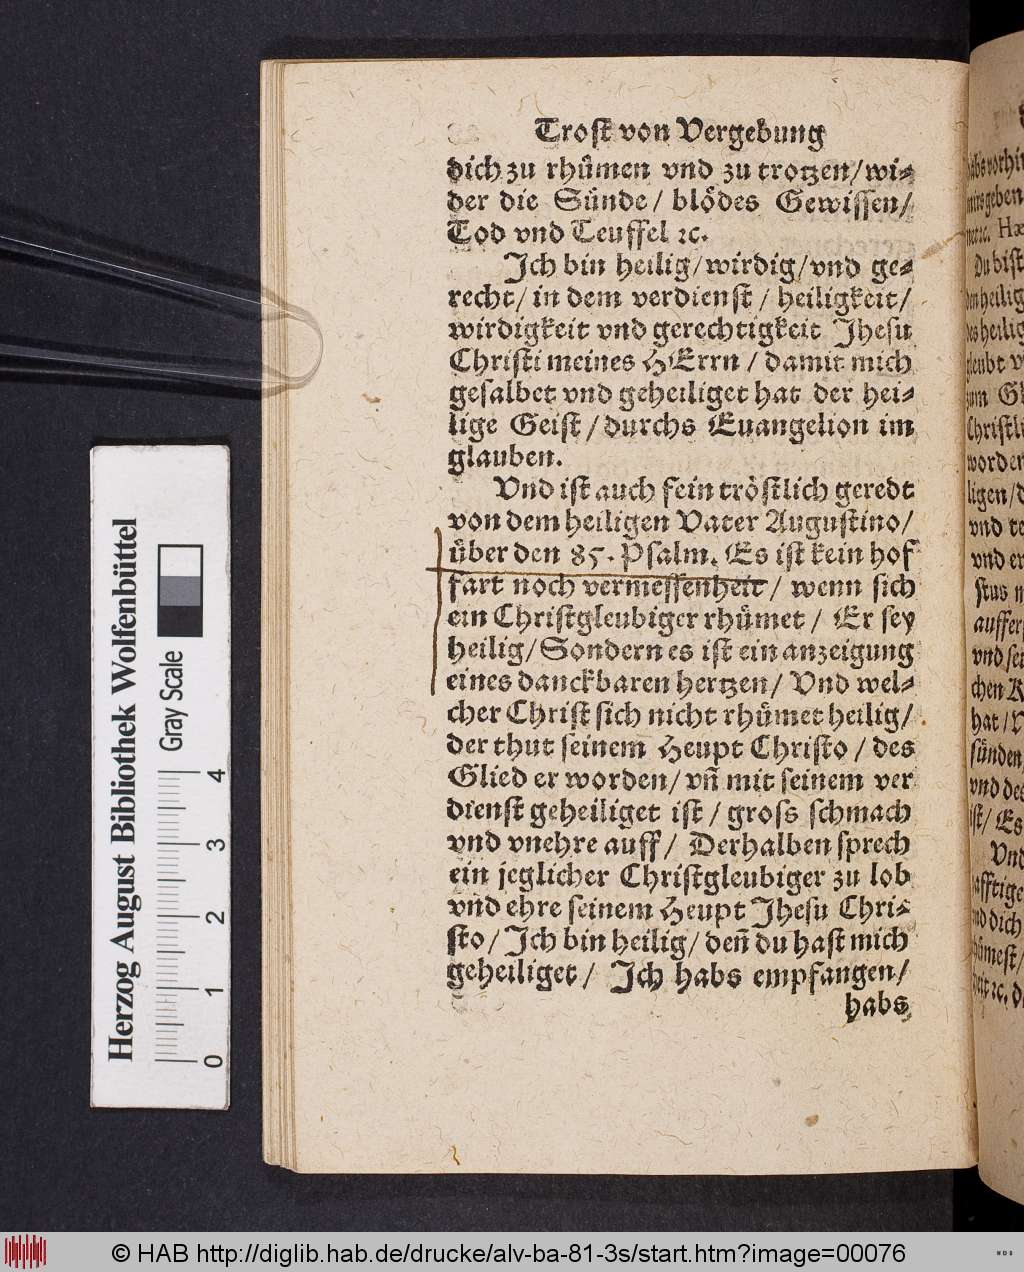 Trost von Vergebung
dich zu rhuͤmen vnd zu trotzen/wi-
der die Suͤnde/ bloͤdes Gewissen/
Tod vnd Teuffel ꝛc.
Ich bin heilig/wirdig/vnd ge-
recht/ in dem verdienst / heiligkeit/
wirdigkeit vnd gerechtigkeit Jhesu
Christi meines HErrn / damit mich
gesalbet vnd geheiliget hat der hei-
lige Geist /durchs Euangelion im
glauben.
Vnd ist auch fein troͤstlich geredt
von dem heiligen Vater Augustino/
uͤber den 85. Psalm. Es ist kein hof
fart noch vermessenheit/ wenn sich
ein Christgleubiger rhuͤmet / Er sey
heilig/Sondern es ist ein anzeigung
eines danckbaren hertzen/ Vnd wel-
cher Christ sich nicht rhuͤmet heilig/
der thut seinem Heupt Christo / des
Glied er worden/ vñ mit seinem ver
dienst geheiliget ist / gross schmach
vnd vnehre auff/ Derhalben sprech
ein jeglicher Christgleubiger zu lob
vnd ehre seinem Heupt Jhesu Chri-
sto/ Ich bin heilig/ deñ du hast mich
geheiliget/ Ich habs empfangen/
habs
Herzog August Bibliothek Wolfenbüttel
Gray Scale
0 1 2 3 4
© HAB http://diglib.hab.de/drucke/alv-ba-81-3s/start.htm?image=00076